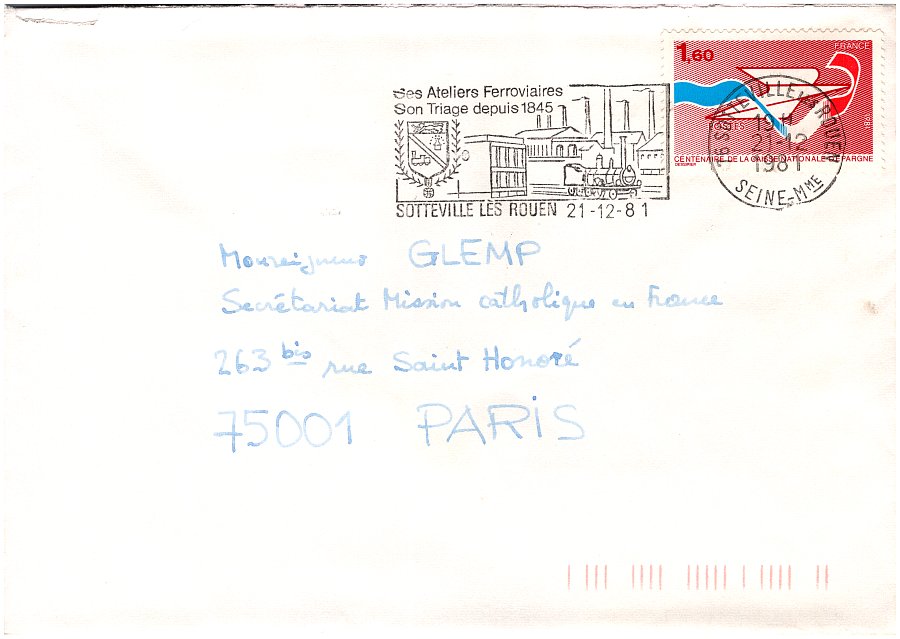 FRANCE
1,60
CENTENAIRE DE LA CAISSE NATIONALE EPARGNE
Ses Ateliers Ferroviaires
Son Triage depuis 1845
SOTTEVILLE LES ROUEN 21-12-81
SOTTEVILLE LES ROUEN
19 H
21-12
1981
SEINE-MME
Monseigneur GLEMP
Secrétariat Mission catholique en France
263 bis rue Saint Honoré
75001 PARIS